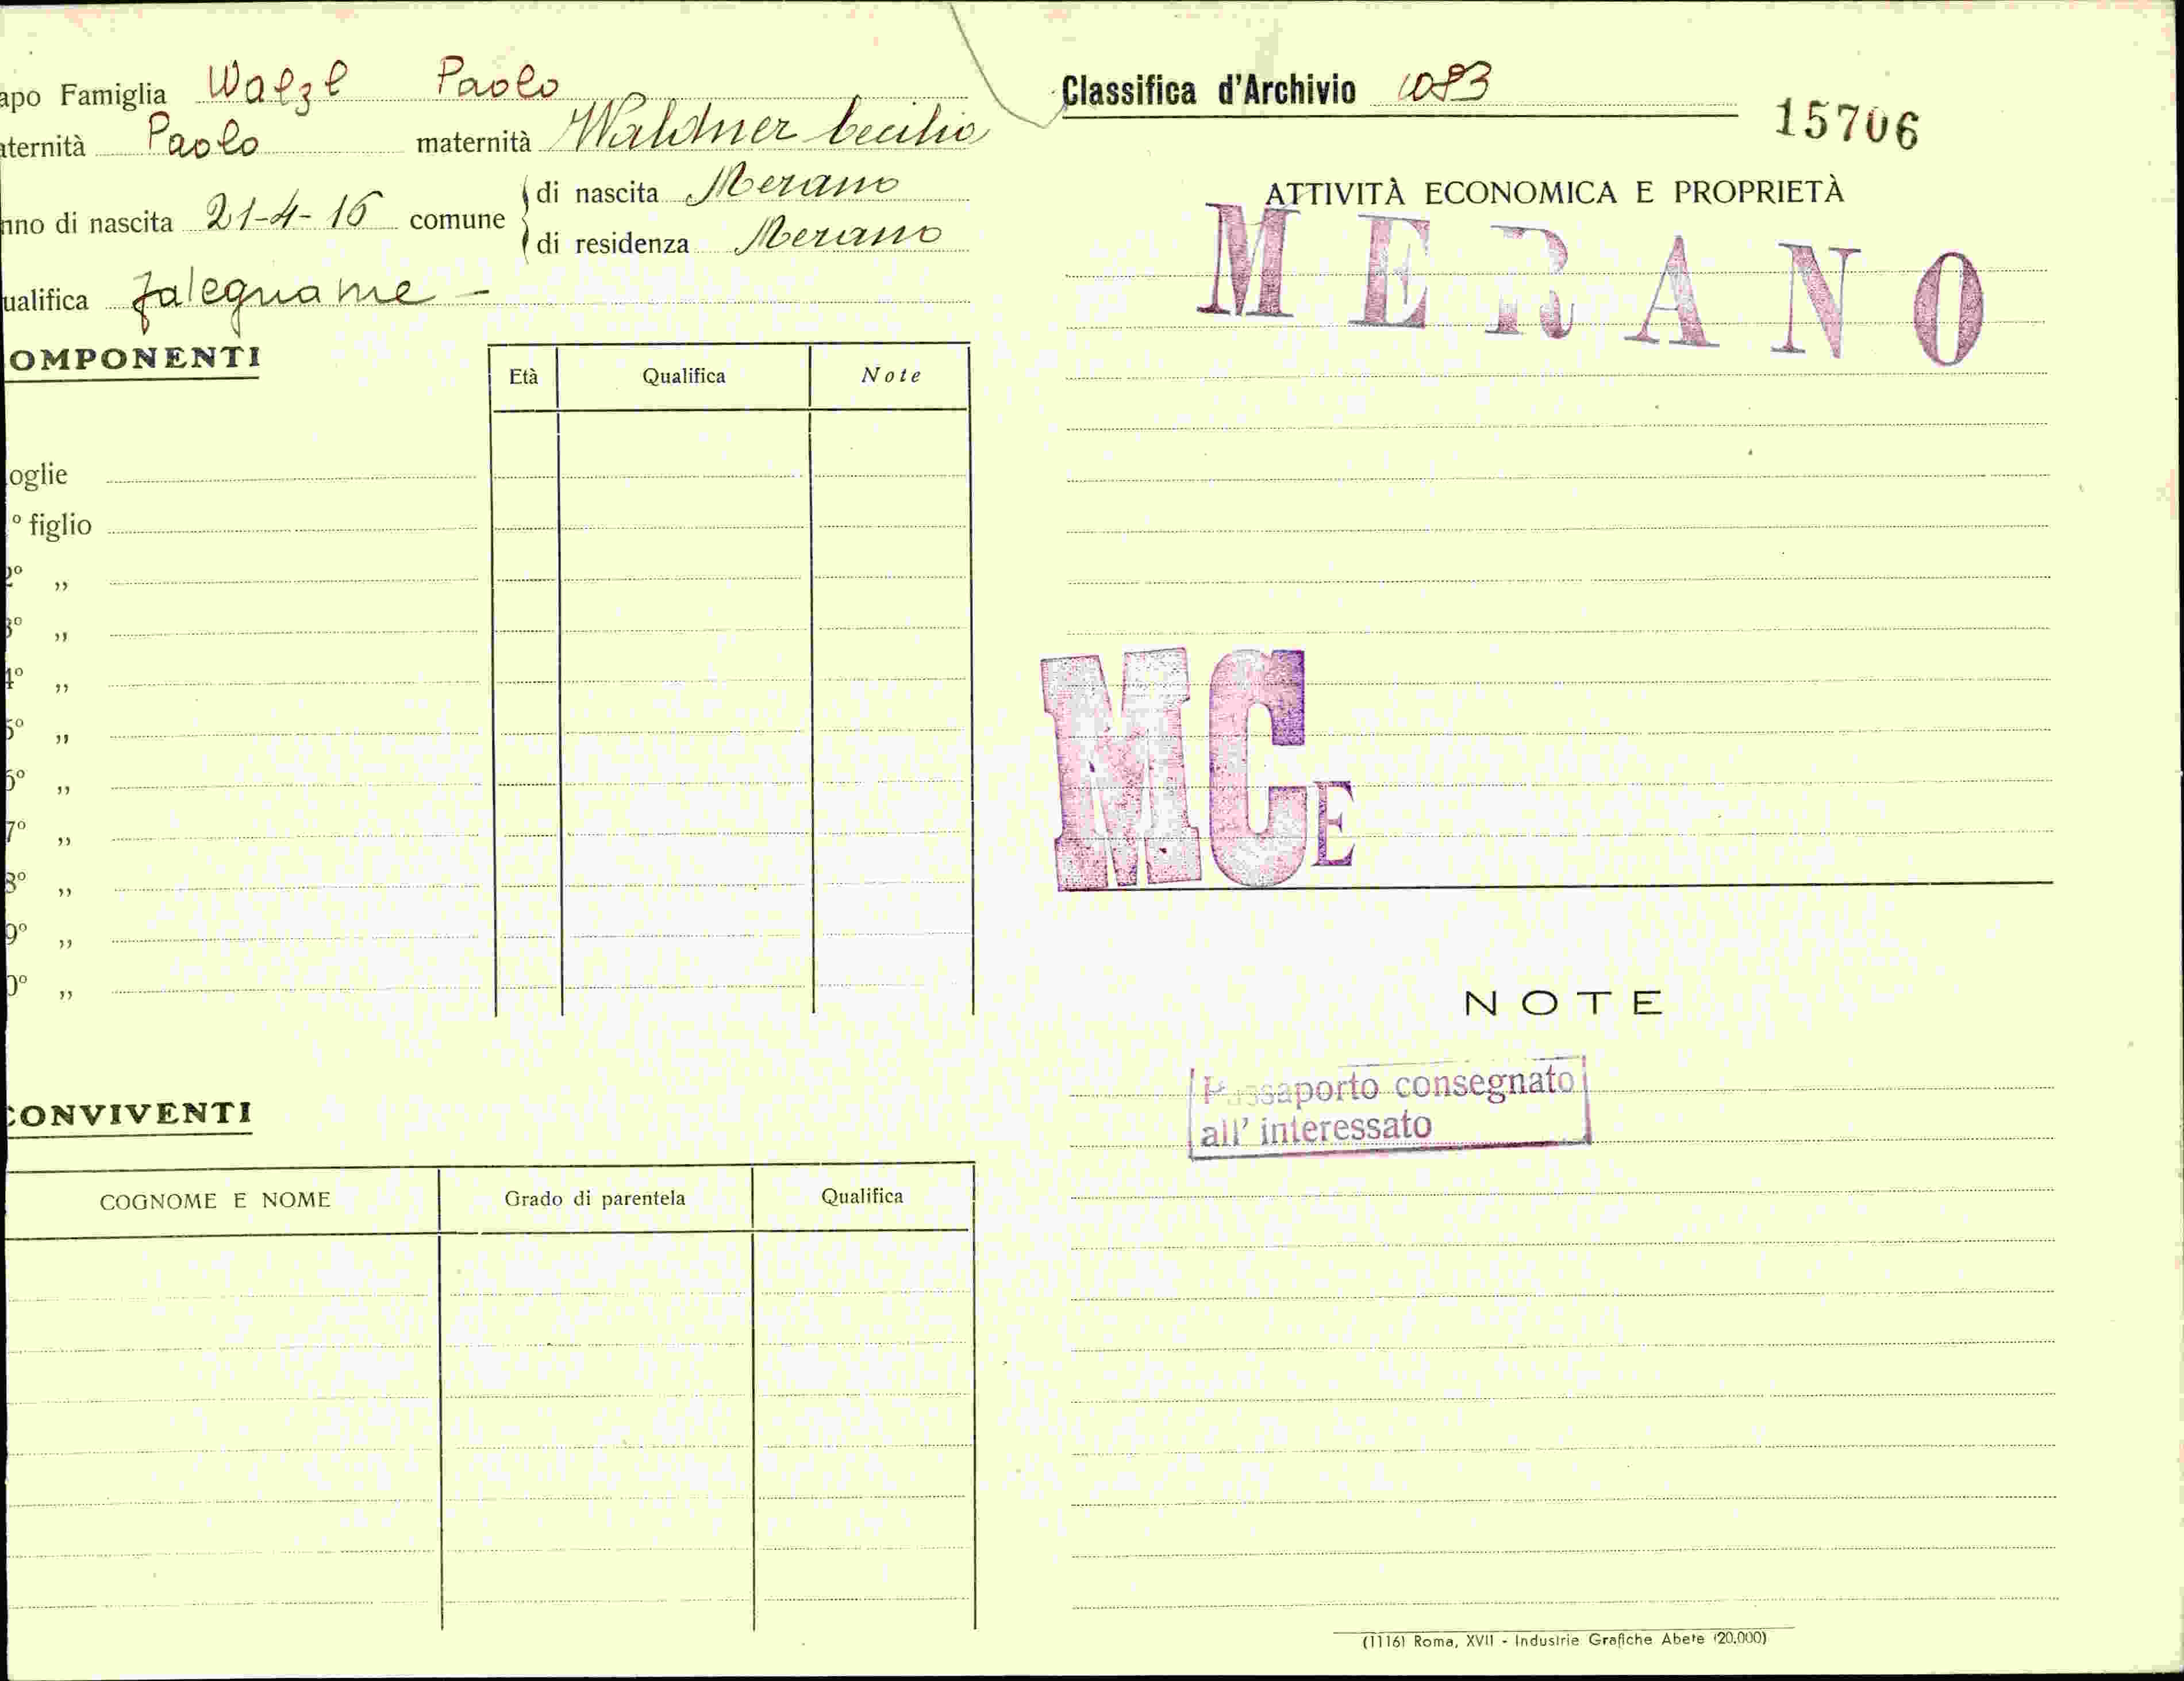 apo Famiglia Walzl Paolo
aternità Paolo maternità Waldner Cecilia
nno di nascita 21-4-16 comune di nascita Merano
di residenza Merano
ualifica falegname -
OMPONENTI
Età Qualifica Note
oglie
º figlio
2º ,,
3º ,,
4º ,,
5º ,,
6º ,,
7º ,,
8º ,,
9º ,,
0º ,,
CONVIVENTI
COGNOME E NOME Grado di parentela Qualifica
Classifica d'Archivio 1083
15706
ATTIVITÀ ECONOMICA E PROPRIETÀ
MERANO
MCE
NOTE
Passaporto consegnato
all' interessato
(1116) Roma, XVII - Industrie Grafiche Abete (20.000)